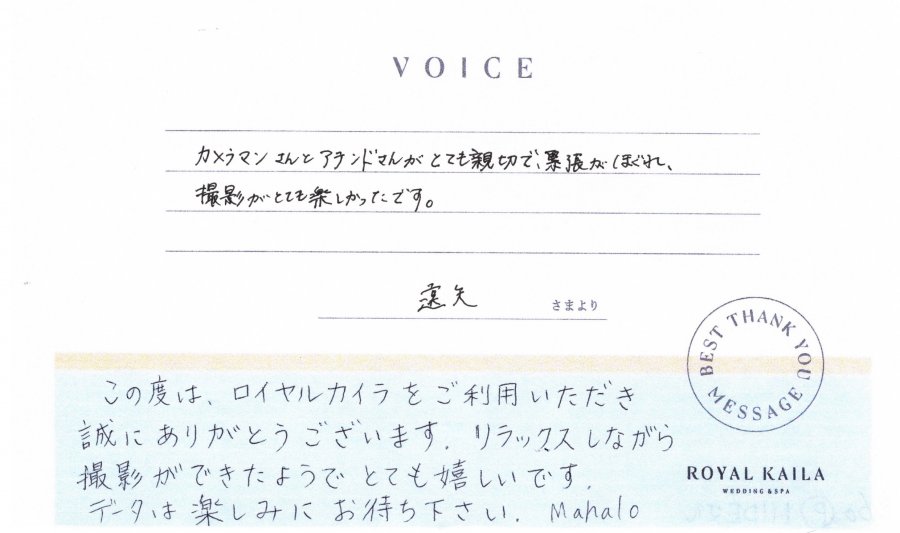 VOICE
カメラマンさんとアテンドさんがとても親切で、緊張がほぐれ、
撮影がとても楽しかったです。
遠矢 さまより
BEST THANK YOU MESSAGE
この度は、ロイヤルカイラをご利用いただき
誠にありがとうございます. リラックスしながら
撮影ができたようでとても嬉しいです.
データは楽しみにお待ち下さい. Mahalo
ROYAL KAILA
WEDDING & SPA